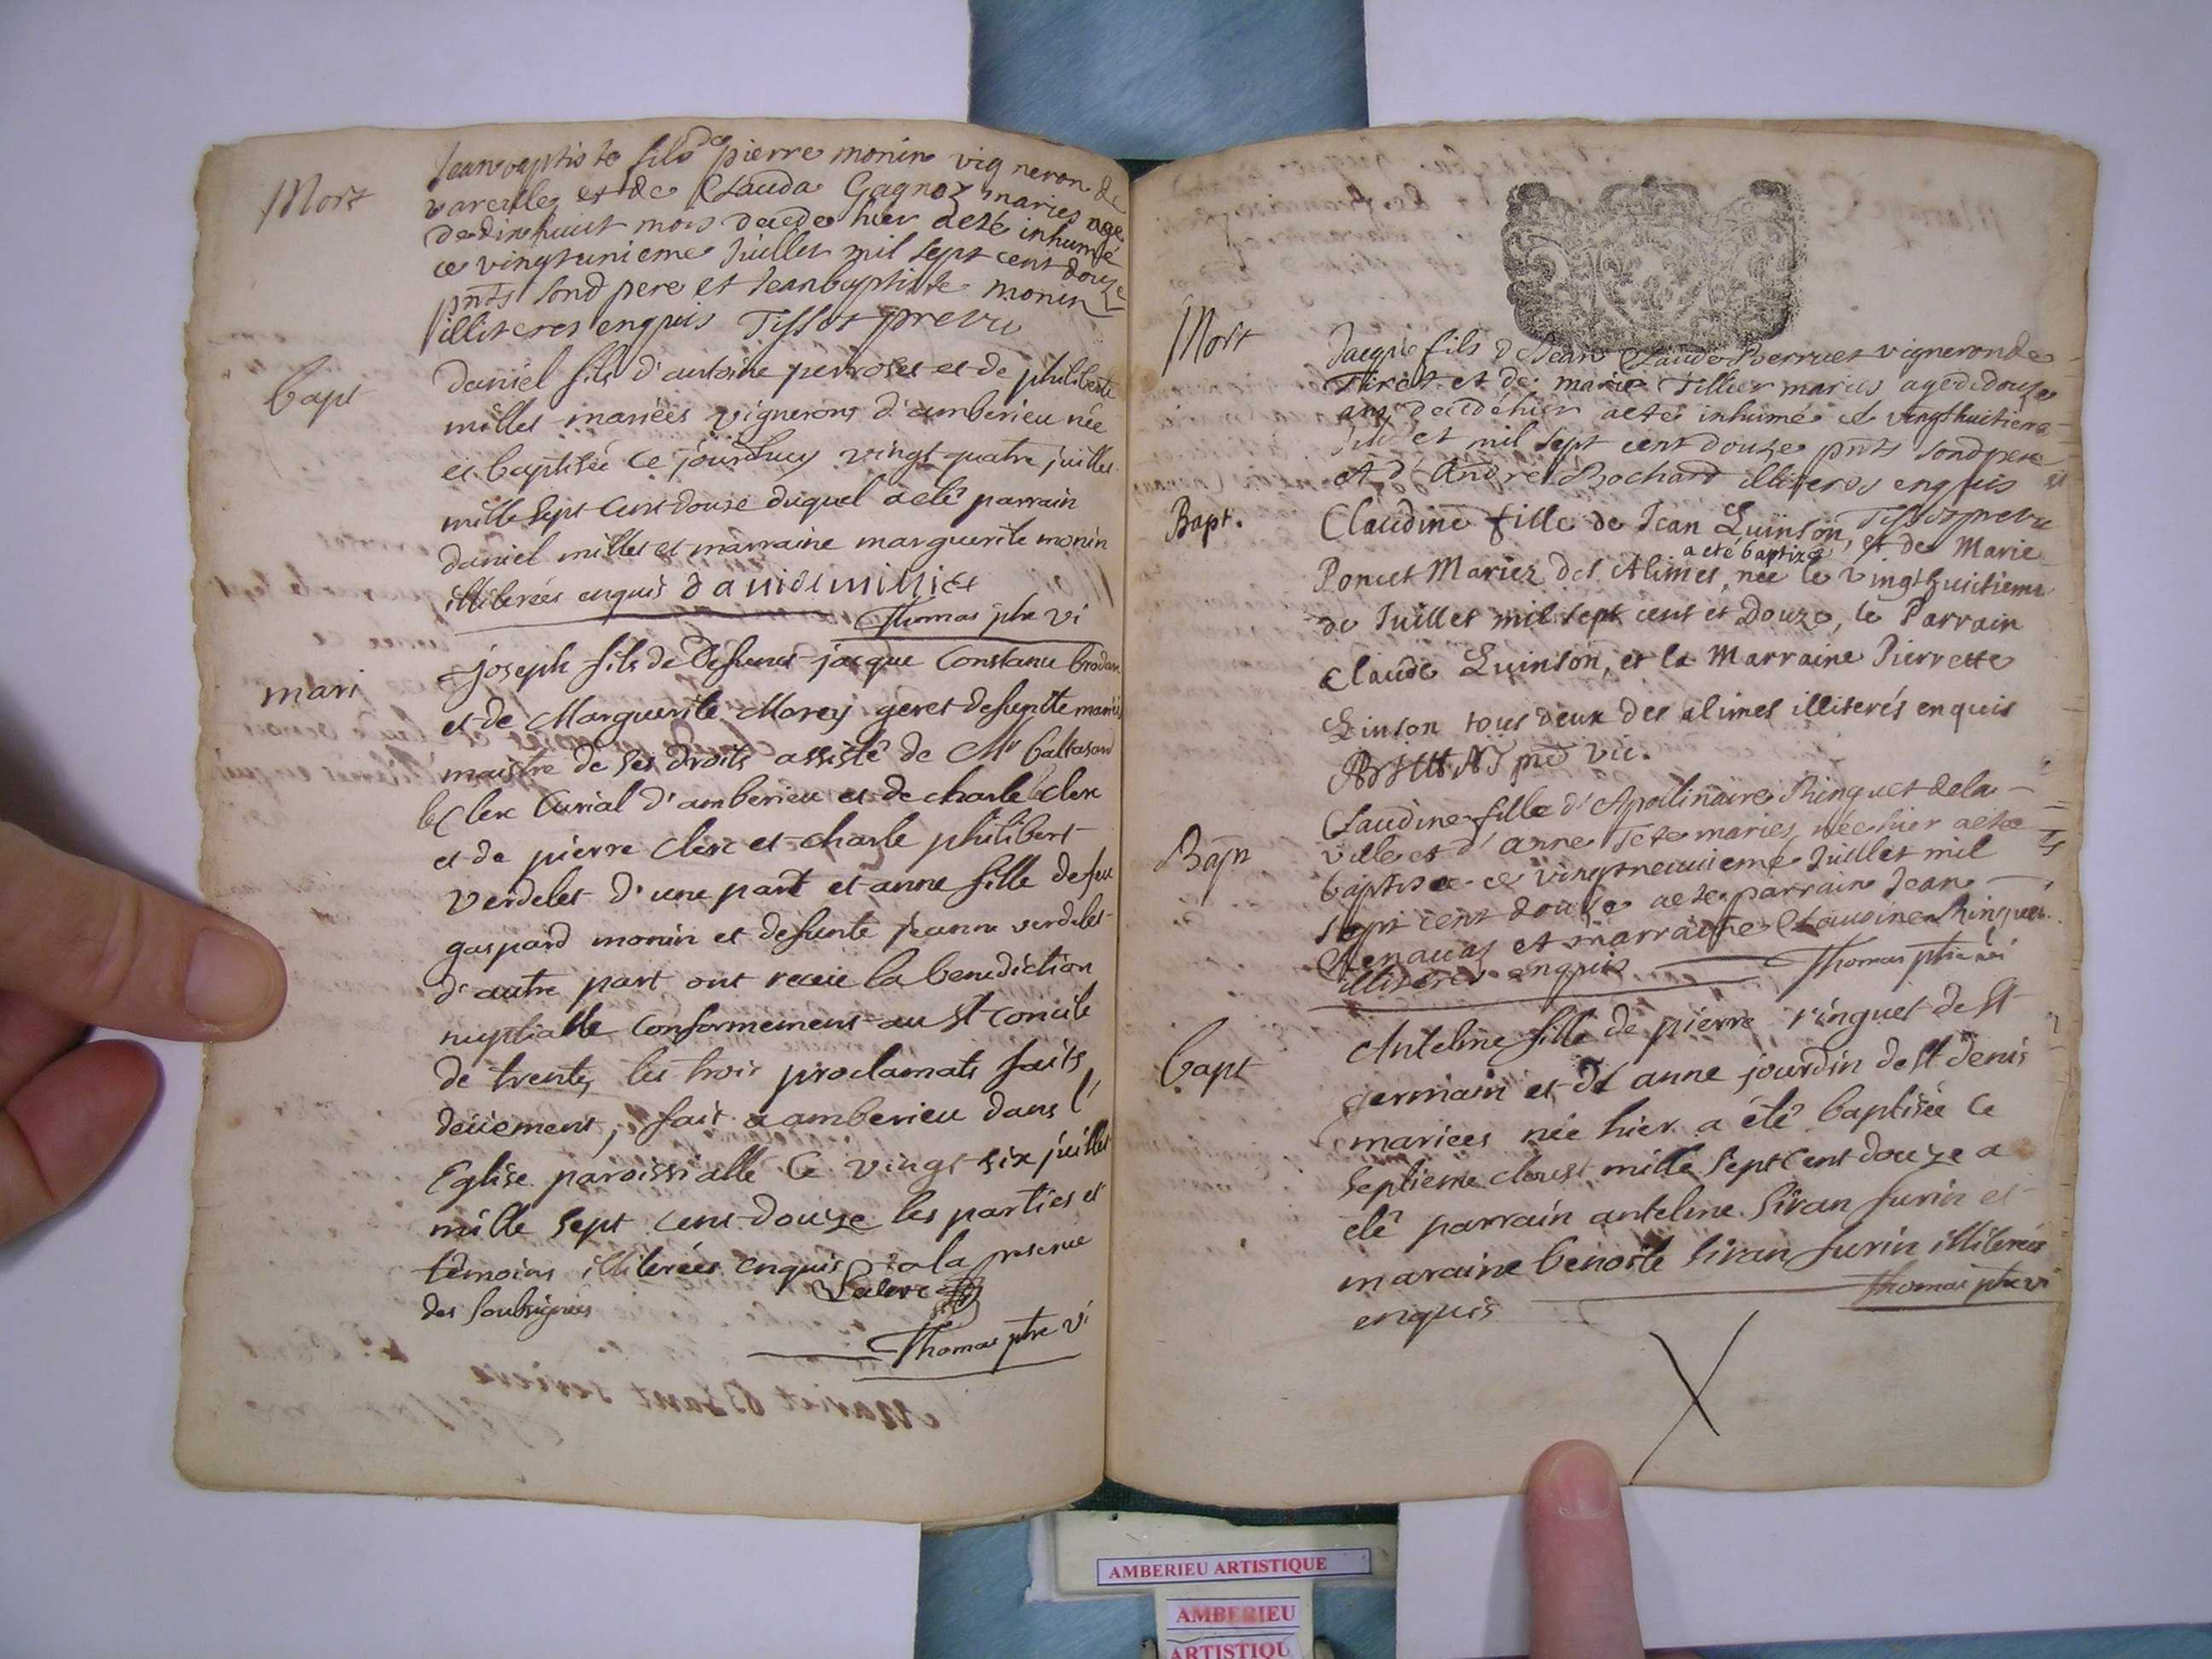 Mort
Jean baptiste fils de pierre monin vigneron de
vareilles et de Clauda Gagnoz maries age
de dix huict mois decede hier a eté inhumé
ce vingt unieme Juillet mil sept cent douze
pnts sond pere et Jean baptiste monin
illiteres enquis Tissot
bapt
daniel fils d'antoine perroset et de philiberte
millet mariées vignerons d'amberieu née
et baptisée ce jourdhuy vingt quatre juillet
mille sept cent douse duquel a elé parrain
daniel millet et marraine marguerite monin
illiterées enquis daniel milliet
Thomas ptre vi
mari
joseph fils de defunct jacque Constanu
et de Marguerite Morey geret defunte mariés
maistre de ses droits assisté de Mr baltasard
le Clerc Curial d'amberieu et de charle le clerc
et de pierre clerc et charle philibert
verdelet d'une part et anne fille de feu
gaspard monin et defunte jeanne verdelet
d'autre part ont receu la benediction
nuptialle conformement au st concile
de trente, les trois proclamats faits
deüement, fait a amberieu dans l'
Eglise paroissialle ce vingt six juillet
mille sept cent douze les parties et
témoins illiterées enquis à la presence
des soubsignées Leclerc
Thomas ptre vi
Mort
Jacque fils de Jean Claude Berruet vigneron de
Tiret et de marie Tillier maries age de douze
ans decedé hier a eté inhumé ce vingt huitieme
Juillet mil sept cent douze pnts sond pere
et d'André Bochard illiteres enquis
Tissot
Bapt.
Claudine fille de Jean Quinson, et de Marie
a eté baptizé
Poncet Mariez des Alimes, née le vingt huictieme
de Juillet mil sept cent et Douze, le Parrain
Claude Quinson, et la Marraine Pierrette
Quinson tous deux des alimes illiterés enquis
pre vic.
Bapn
Claudine fille d'Apollinaire Ringuet de la
ville et d'anne Tete maries, née hier a eté
baptisee ce vingt neuuieme Juillet mil
sept cent douze a eté parrain Jean
Renaud et marraine Claudine Ringuet
illiteres enquis Thomas ptre vi
bapt
Anteline fille de pierre ringuet de st
germain et de anne jourdin de st denis
mariees née hier a été baptisée ce
septieme doust mille sept cent douze a
elé parrain anteline sivan surin et
maraine benoite sivan surin illiterées
enquis Thomas ptre vi
AMBERIEU ARTISTIQUE
AMBERIEU
ARTISTIQU